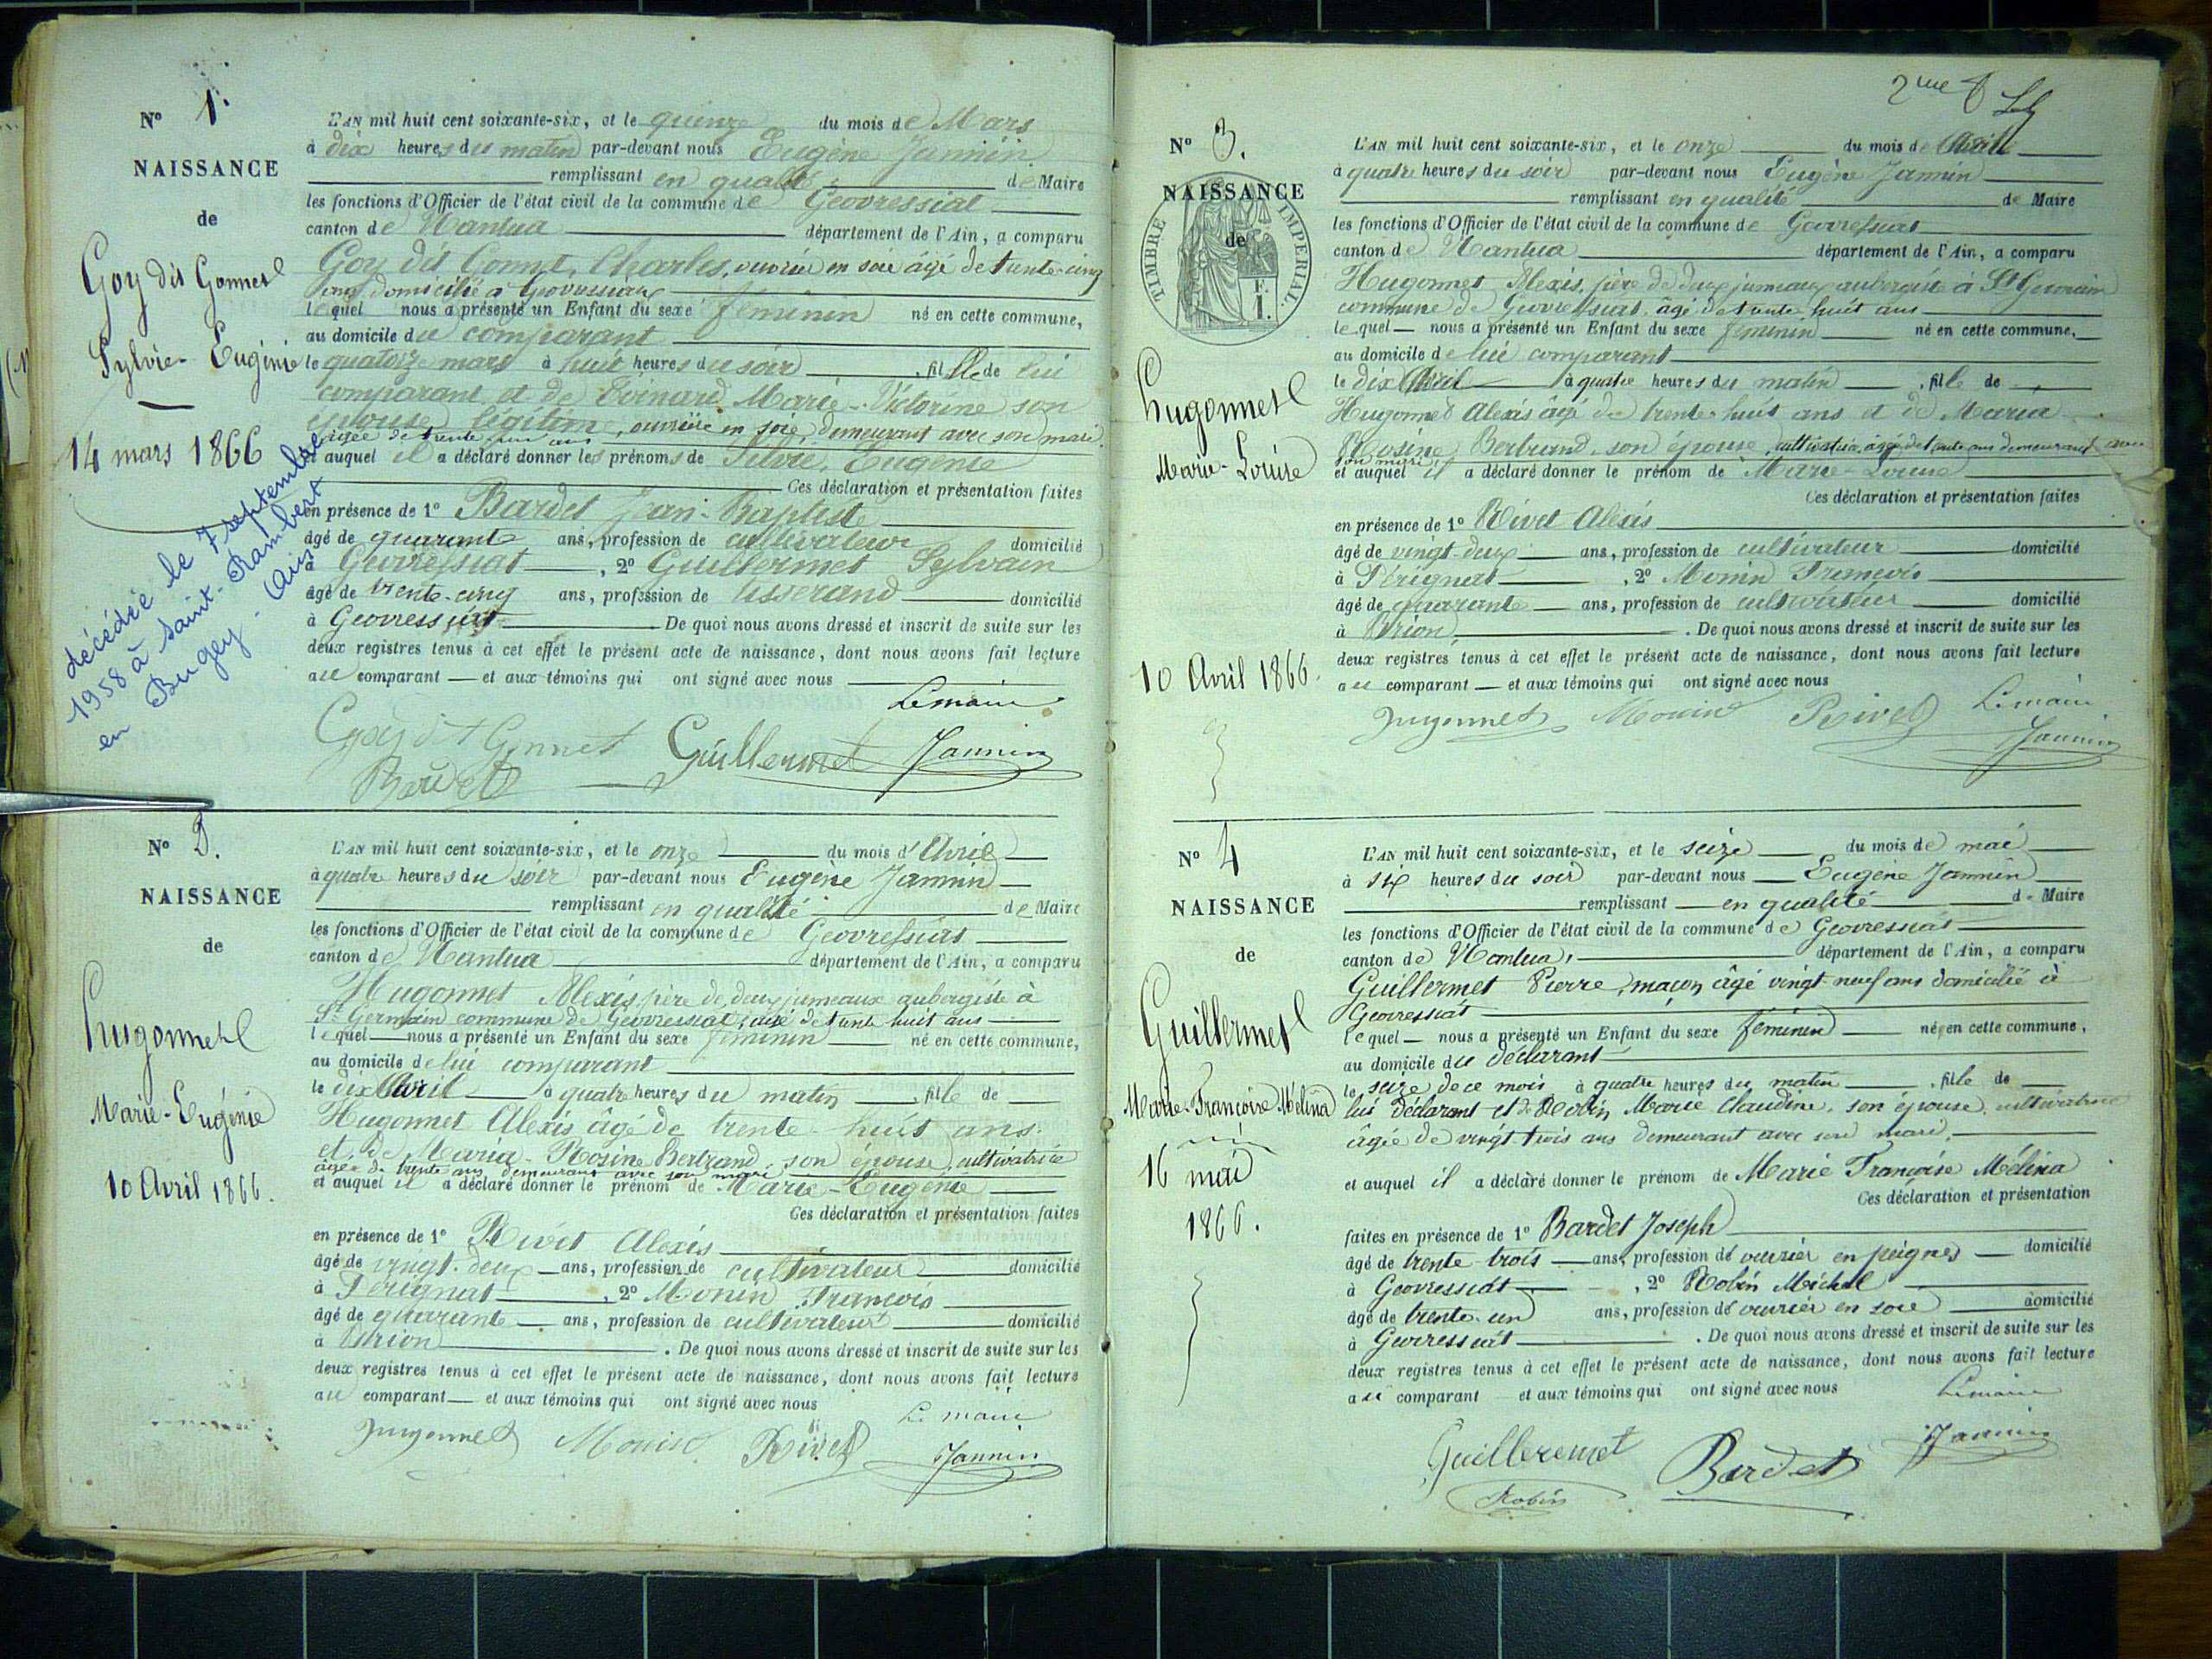 N° 1.
NAISSANCE
de
Goy dit Gonnet
Sylvie-Eugénie
14 mars 1866
décédée le 7 septembre
1958 à Saint-Rambert
en Bugey - Ain
L'AN mil huit cent soixante-six, et le quinze du mois de Mars
à dix heures du matin par-devant nous Eugène Jannin
remplissant en qualité de Maire
les fonctions d'Officier de l'état civil de la commune de Géovressiat
canton de Nantua département de l'Ain, a comparu
Goy dit Gonnet, Charles, ouvrier en soie âgé de trente-cinq
ans domicilié à Géovressiat
lequel nous a présenté un Enfant du sexe féminin né en cette commune,
au domicile du comparant
le quatorze mars à huit heures du soir, fille de lui
comparant et de Evinard Marie-Victorine son
épouse légitime, ouvrière en soie, demeurant avec son mari.
âgée de trente un ans
et auquel il a déclaré donner les prénoms de Silvie, Eugénie
Ces déclaration et présentation faites
en présence de 1° Bardet Jean-Baptiste
âgé de quarante ans, profession de cultivateur domicilié
à Géovressiat, 2° Guillermet Sylvain
âgé de trente-cinq ans, profession de tisserand domicilié
à Géovressiat De quoi nous avons dressé et inscrit de suite sur les
deux registres tenus à cet effet le présent acte de naissance, dont nous avons fait lecture
au comparant et aux témoins qui ont signé avec nous
Le maire
Goy dit Gonnet Guillermet Jannin
Bardet
N° 2.
NAISSANCE
de
hugonnet
Marie-Eugénie
10 Avril 1866.
L'AN mil huit cent soixante-six, et le onze du mois d'Avril
à quatre heures du soir par-devant nous Eugène Jannin
remplissant en qualité de Maire
les fonctions d'Officier de l'état civil de la commune de Géovressiat
canton de Nantua département de l'Ain, a comparu
Hugonnet Alexis, père de deux jumeaux aubergiste à
St Germain commune de Géovressiat, âgé de trente huit ans
lequel nous a présenté un Enfant du sexe féminin né en cette commune,
au domicile de lui comparant
le dix Avril à quatre heures du matin, fille de
Hugonnet Alexis âgé de trente-huit ans
et de Maria-Rosine Bertrand son épouse, cultivatrice
âgée de trente ans demeurant avec son mari
et auquel il a déclaré donner le prénom de Marie-Eugénie
Ces déclaration et présentation faites
en présence de 1° Rivet Alexis
âgé de vingt-deux ans, profession de cultivateur domicilié
à Pérignat, 2° Monin François
âgé de quarante ans, profession de cultivateur domicilié
à Brion. De quoi nous avons dressé et inscrit de suite sur les
deux registres tenus à cet effet le présent acte de naissance, dont nous avons fait lecture
au comparant et aux témoins qui ont signé avec nous
Le maire
hugonnet Monin Rivet Jannin
2me f
N° 3.
NAISSANCE
de
TIMBRE IMPERIAL.
F.
1.
hugonnet
Marie-Louise
10 Avril 1866.
L'AN mil huit cent soixante-six, et le onze du mois de Avril
à quatre heures du soir par-devant nous Eugène Jannin
remplissant en qualité de Maire
les fonctions d'Officier de l'état civil de la commune de Géovressiat
canton de Nantua département de l'Ain, a comparu
Hugonnet Alexis, père de deux jumeaux aubergiste à St Germain
commune de Géovressiat âgé de trente huit ans
lequel nous a présenté un Enfant du sexe féminin né en cette commune,
au domicile de lui comparant
le dix Avril à quatre heures du matin, fille de
Hugonnet Alexis âgé de trente-huit ans et de Maria
Rosine Bertrand son épouse, cultivatrice âgée de trente ans demeurant avec
son mari
et auquel il a déclaré donner le prénom de Marie-Louise
Ces déclaration et présentation faites
en présence de 1° Rivet Alexis
âgé de vingt-deux ans, profession de cultivateur domicilié
à Pérignat, 2° Monin François
âgé de quarante ans, profession de cultivateur domicilié
à Brion. De quoi nous avons dressé et inscrit de suite sur les
deux registres tenus à cet effet le présent acte de naissance, dont nous avons fait lecture
au comparant et aux témoins qui ont signé avec nous
Le maire
hugonnet Monin Rivet Jannin
N° 4
NAISSANCE
de
Guillermet
Marie-Françoise Mélina
16 mai
1866.
L'AN mil huit cent soixante-six, et le seize du mois de mai
à six heures du soir par-devant nous Eugène Jannin
remplissant en qualité de Maire
les fonctions d'Officier de l'état civil de la commune de Géovressiat
canton de Nantua, département de l'Ain, a comparu
Guillermet Pierre, maçon âgé vingt-neuf ans domicilié à
Géovressiat
lequel nous a présenté un Enfant du sexe féminin né en cette commune,
au domicile du déclarant
le seize de ce mois à quatre heures du matin, fille de
lui déclarant et de Robin Marie Claudine, son épouse, cultivatrice
âgée de vingt-trois ans demeurant avec son mari,
et auquel il a déclaré donner le prénom de Marie Françoise Mélina
Ces déclaration et présentation
faites en présence de 1° Bardet Joseph
âgé de trente-trois ans, profession de ouvrier en peignes domicilié
à Géovressiat, 2° Robin Michel
âgé de trente-un ans, profession de ouvrier en soie domicilié
à Géovressiat. De quoi nous avons dressé et inscrit de suite sur les
deux registres tenus à cet effet le présent acte de naissance, dont nous avons fait lecture
au comparant et aux témoins qui ont signé avec nous
Le maire
Guilleremet Bardet Jannin
Robin